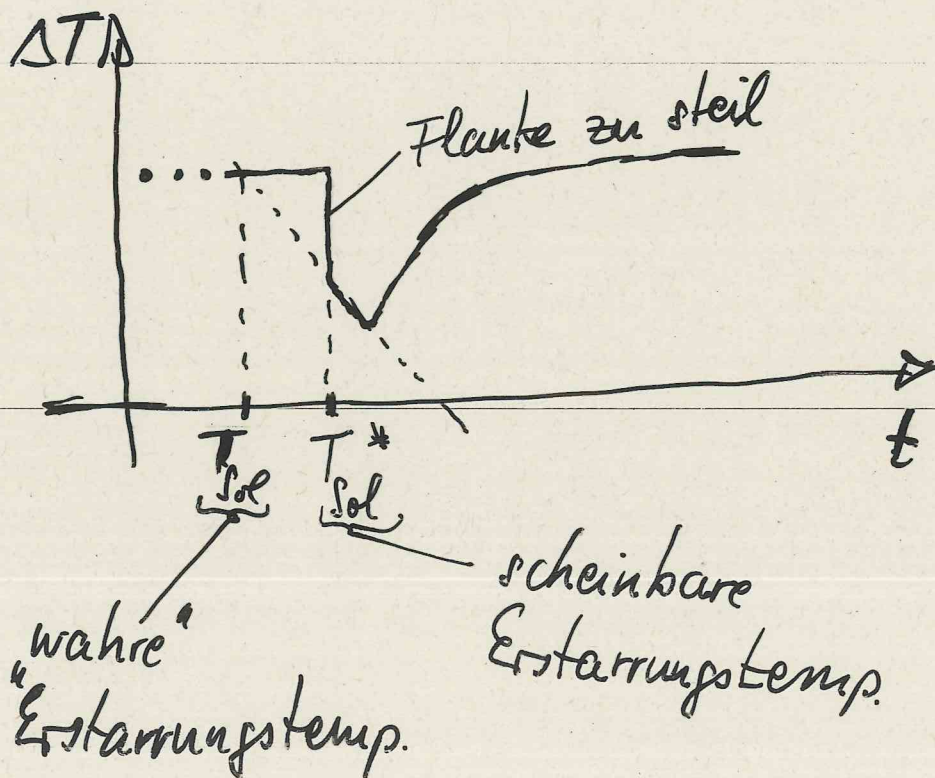 ΔT
Flanke zu steil
T sol
T* sol
t
scheinbare
Erstarrungstemp.
„wahre“
Erstarrungstemp.